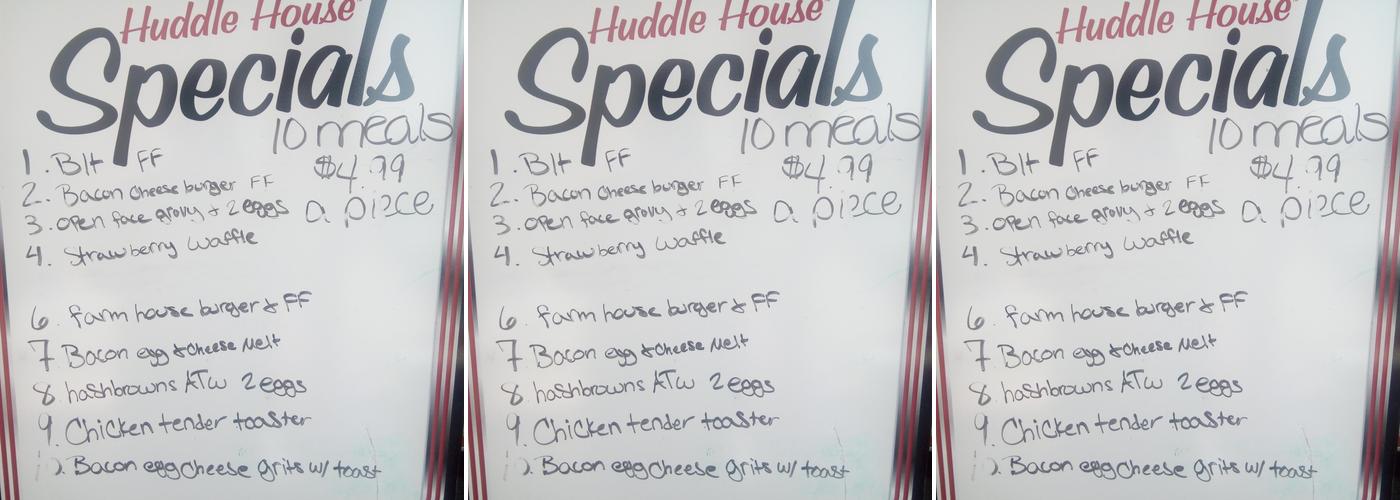 Huddle House
Specials
10 meals
$4.99
a piece
1. Blt FF
2. Bacon Cheese burger FF
3. open face gravy & 2 eggs
4. Strawberry waffle
6. farm house burger & FF
7 Bacon egg & cheese Melt
8 hashbrowns ATW 2 eggs
9. Chicken tender toaster
Bacon egg Cheese grits w/ toast
Huddle House
Specials
10 meals
$4.99
a piece
1. Blt FF
2. Bacon Cheese burger FF
3. open face gravy & 2 eggs
4. Strawberry waffle
6. farm house burger & FF
7 Bacon egg & cheese Melt
8 hashbrowns ATW 2 eggs
9. Chicken tender toaster
Bacon egg Cheese grits w/ toast
Huddle House
Specials
10 meals
$4.99
a piece
1. Blt FF
2. Bacon Cheese burger FF
3. open face gravy & 2 eggs
4. Strawberry waffle
6. farm house burger & FF
7 Bacon egg & cheese Melt
8 hashbrowns ATW 2 eggs
9. Chicken tender toaster
Bacon egg Cheese grits w/ toast